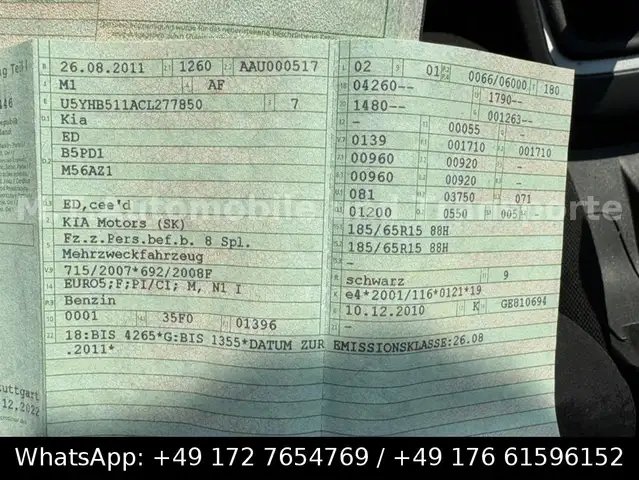 26.08.2011 1260 AAU000517
M1 AF
U5YHB511ACL277850 7
Kia
ED
B5PD1
M56AZ1
ED,cee'd
KIA Motors (SK)
Fz.z.Pers.bef.b. 8 Spl.
Mehrzweckfahrzeug
715/2007*692/2008F
EURO5;F;PI/CI; M, N1 I
Benzin
0001 35F0 01396
02 01 0066/06000 180
04260-- 1790--
1480-- 001263--
- 00055 -
0139 001710 001710
00960 00920 -
00960 00920 -
081 03750 071
01200 0550 005
185/65R15 88H
185/65R15 88H
-
schwarz 9
e4*2001/116*0121*19
10.12.2010 K GE810694
-
18:BIS 4265*G:BIS 1355*DATUM ZUR EMISSIONSKLASSE:26.08
.2011*
WhatsApp: +49 172 7654769 / +49 176 61596152